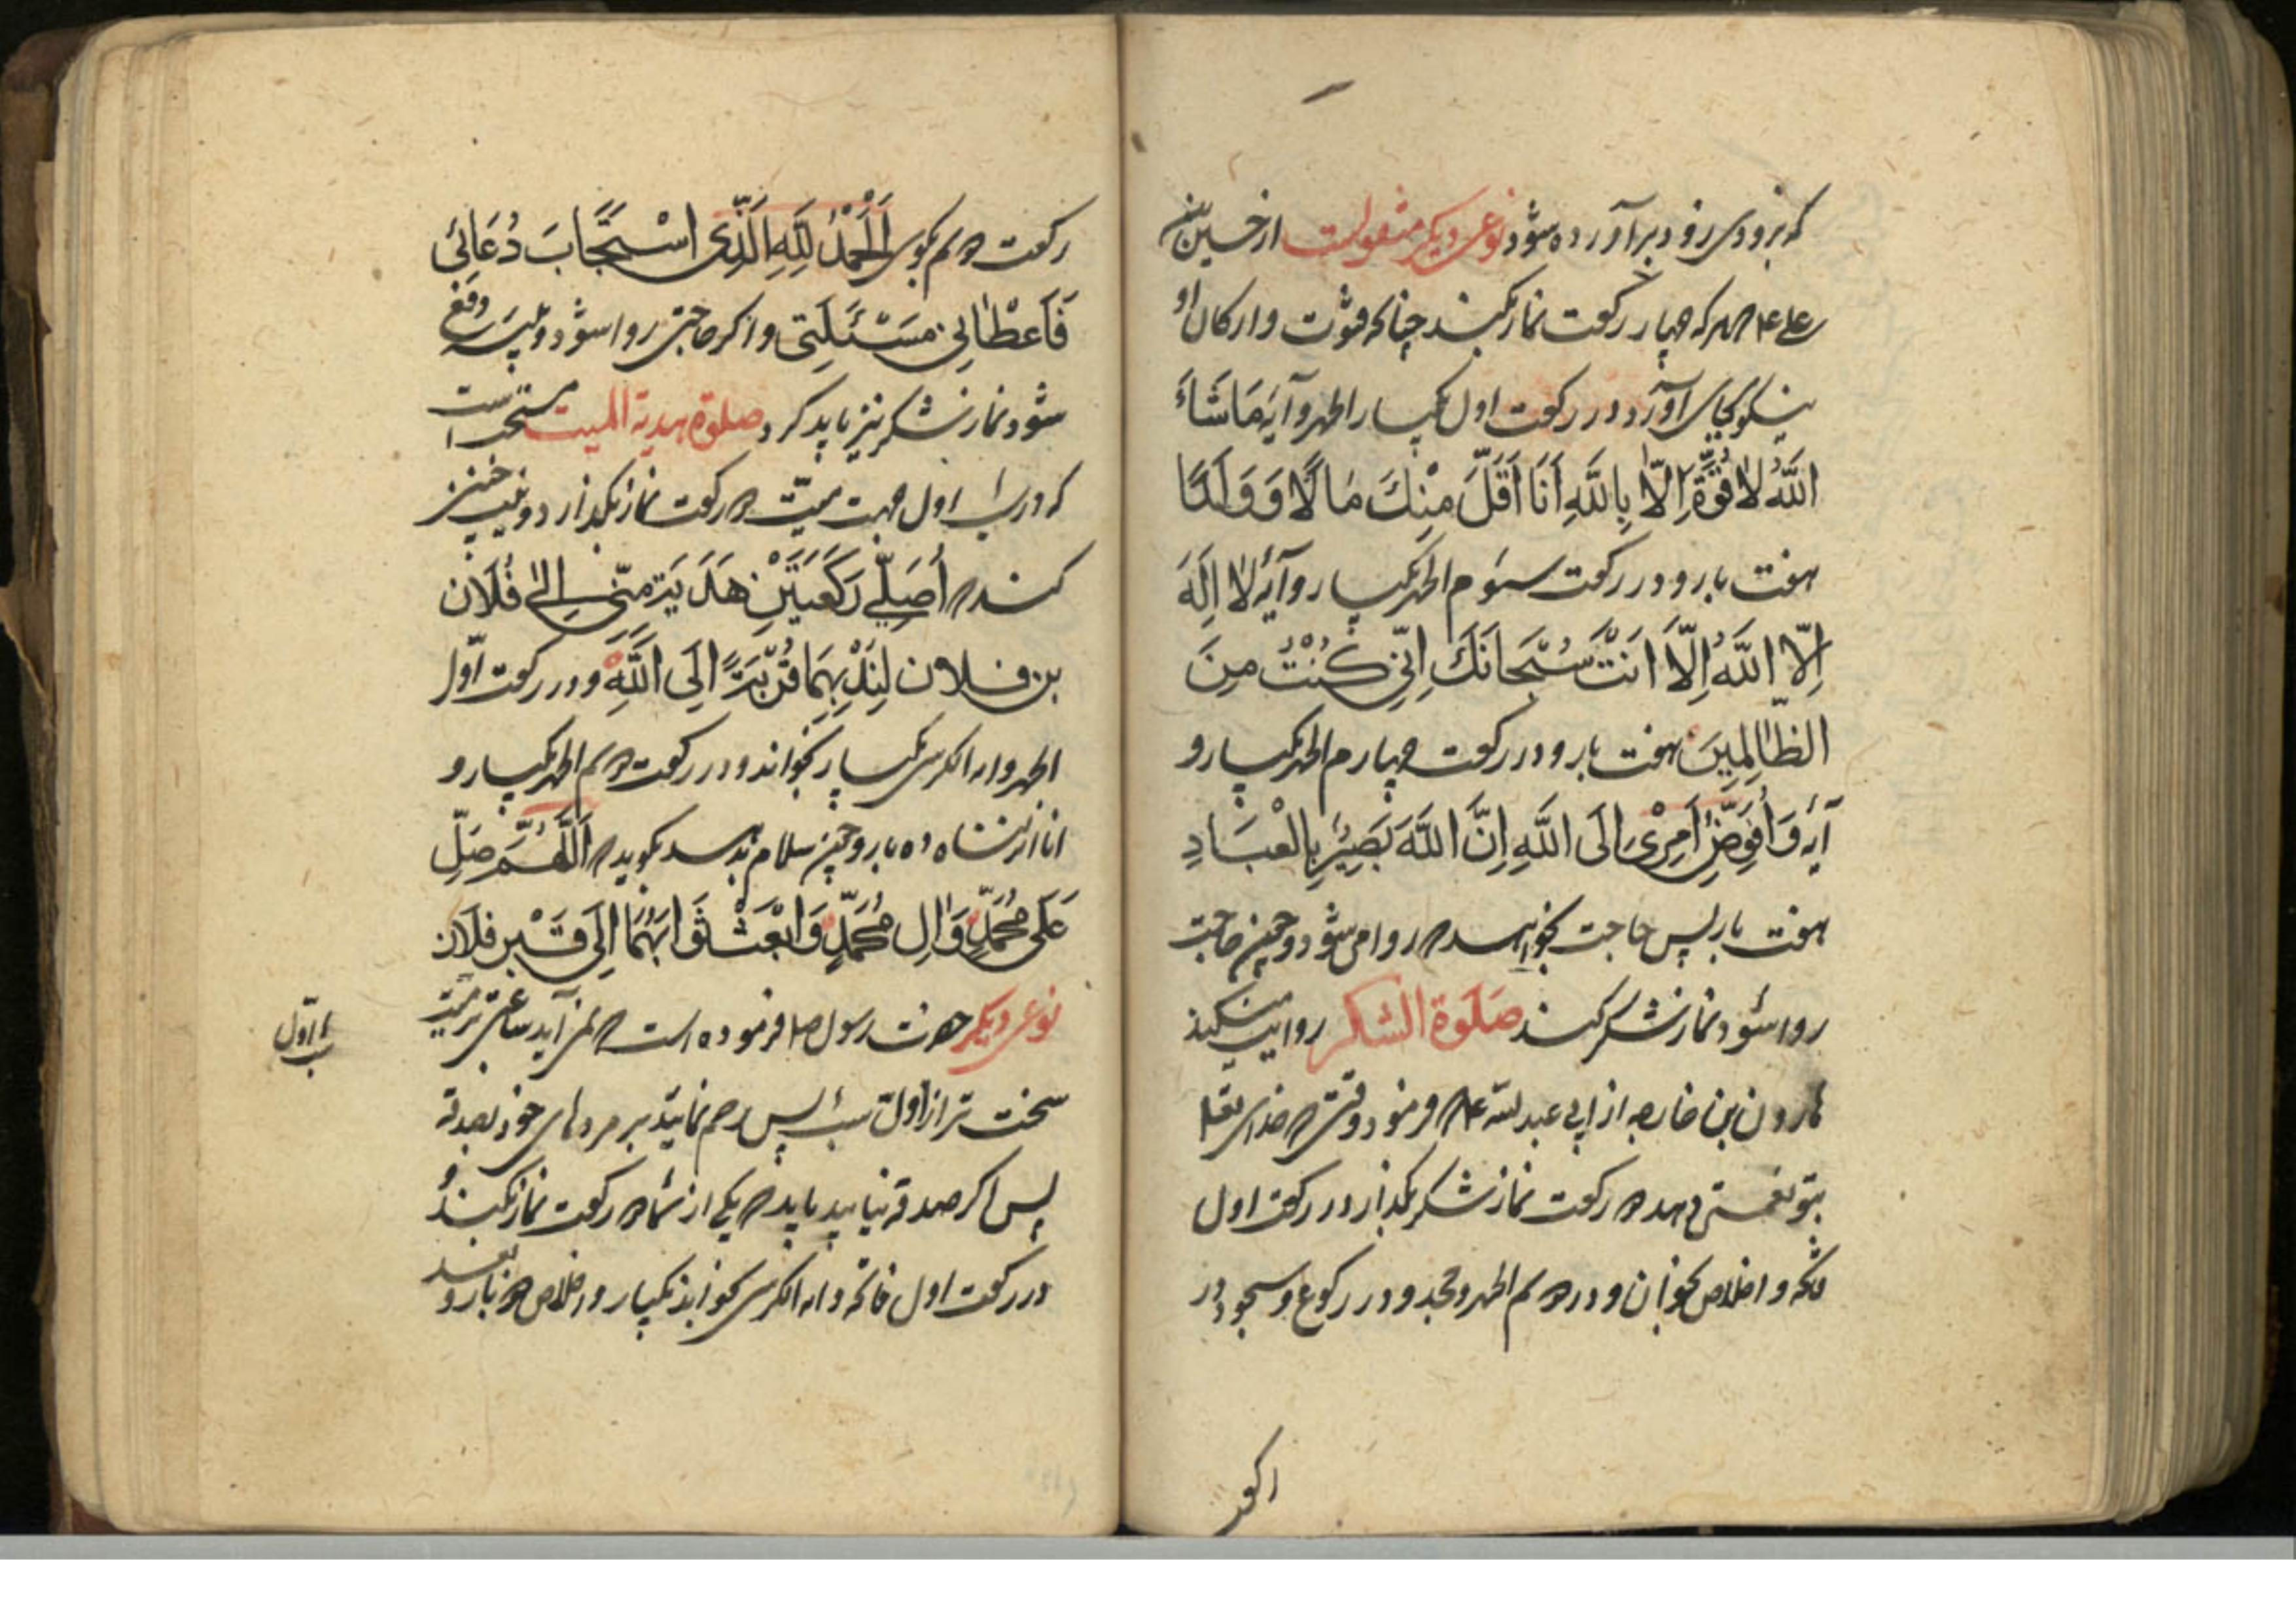 که بزودی زود برآورده شود نوعی دیکر منقولست از حسین بن
علی ع هر که چهار رکعت نماز بکند چنانکه قنوت و ارکان او
نیکو بجای آورد در رکعت اول یکبار الحمد و آیه مَا شَاءَ
اللَّهُ لَا قُوَّةَ إِلَّا بِاللَّهِ أَنَا أَقَلَّ مِنْكَ مَالًا وَوَلَدًا
هفت بار و در رکعت سوم الحمد یکبار و آیه لا اِلَهَ
اِلَّا اللَّهُ اِلَّا اَنْتَ سُبْحَانَكَ اِنِّي كُنْتُ مِنَ
الظَّالِمِينَ هفت بار و در رکعت چهارم الحمد یکبار و
آیه وَاُفَوِّضُ اَمْرِی اِلَى اللَّهِ اِنَّ اللَّهَ بَصِيرٌ بِالْعِبَادِ
هفت بار پس حاجت بخواهد که روا می شود و چون حاجت
روا شود نماز شکر کند صَلَوة الشكر روایت میکند
هارون بن خارجه از ابی عبد الله ع که فرمود وقتی که خدای تعا
بتو نعمتی دهد دو رکعت نماز شکر بکذار در رکعت اول
فاتحه و اخلاص بخوان و در دویم الحمد و جحد و در رکوع و سجود در
رکعت دویم بکوی اَلْحَمْدُ لِلَّهِ الَّذِی اسْتَجَابَ دُعَائِی
فَاَعْطَانِی مَسْئَلَتِی و اکر حاجتی روا شود و بلیه دفع
شود نماز شکر نیز باید کرد صلوة هدیة المیت مستحب است
که در شب اول جهت میت دو رکعت نماز بکذارد و نیت چنین
کند که اُصَلِّی رَكْعَتَيْنِ هَدَيَة مِنّی اِلی فُلَان
بن فلان لِنَدْبِهِمَا قُرْبَةً اِلَى اللَّهِ و در رکعت اول
الحمد و ایه الکرسی یکبار بخواند و در رکعت دویم الحمد یکبار و
انا انزلناه ده بار و چون سلام بدهد بکوید که اَللَّهُمَّ صَلِّ
عَلَى مُحَمَّدٍ وَالِ مُحَمَّدٍ وَابْعَثْ ثَوَابَهُمَا اِلَى قَبْرِ فلَان
نوعی دیکر حضرت رسول ص فرموده است که نمی آید ساعتی بر میت
سخت تر از اول شب پس رحم نمایید بر مردهای خود بصدقه
شب اول
پس اکر صدقه نیابید باید که یکی از شما دو رکعت نماز بکند و
در رکعت اول فاتحه و ایه الکرسی بخواند یکبار و اخلاص دو بار و بعد
رکعت